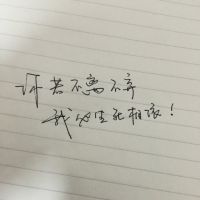 许若不离不弃
我必生死相依！